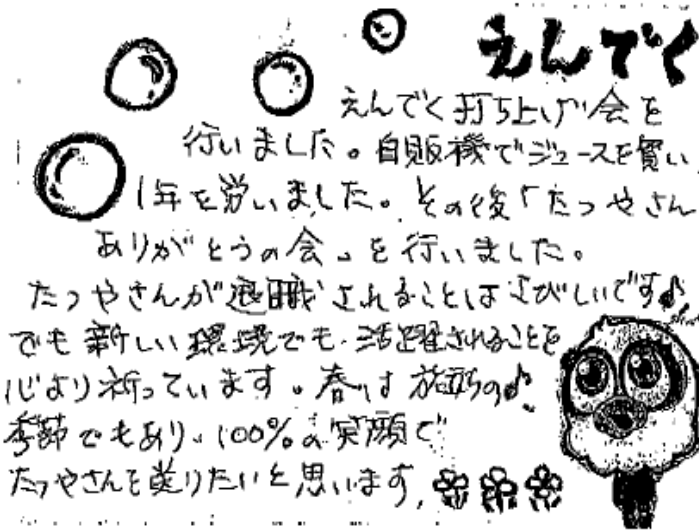 えんでく
えんでく打ち上げ会を
行いました。自販機でジュースを買い、
1年を労いました。その後「たつやさん
ありがとうの会」を行いました。
たつやさんが退職されることはさびしいです♪
でも新しい環境でも、活躍されることを
心より祈っています。春は旅立ちの♪
季節でもあり、100%の笑顔で
たつやさんを送りたいと思います。